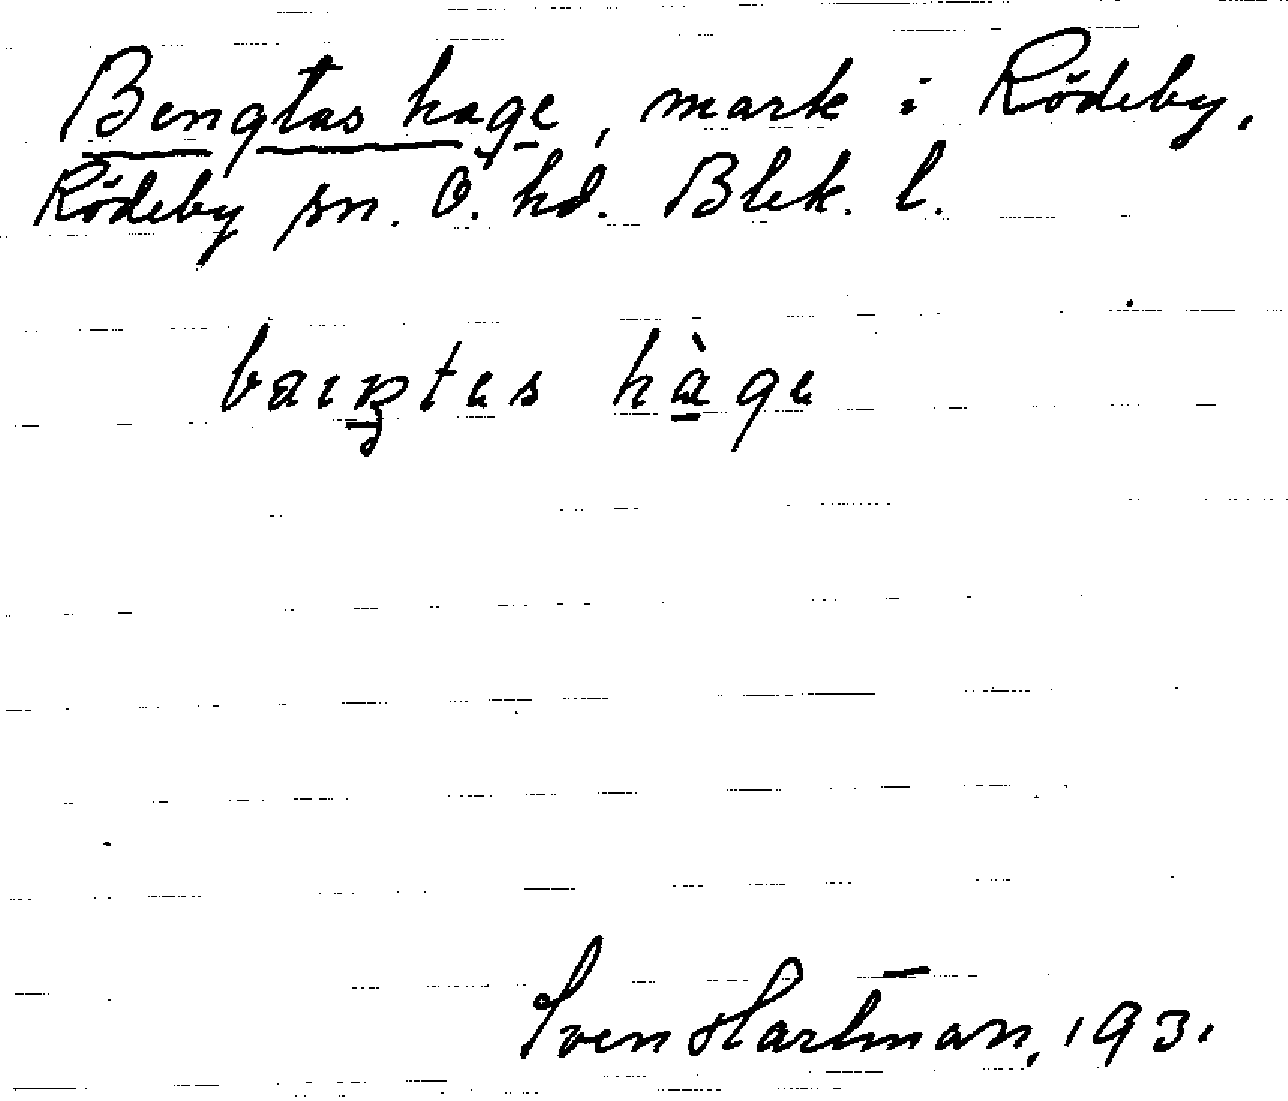 Bengtas hage, mark i Rödeby,
Rödeby sn. Ö. hd. Blek. l.
hàge
Sven Hartman, 1931